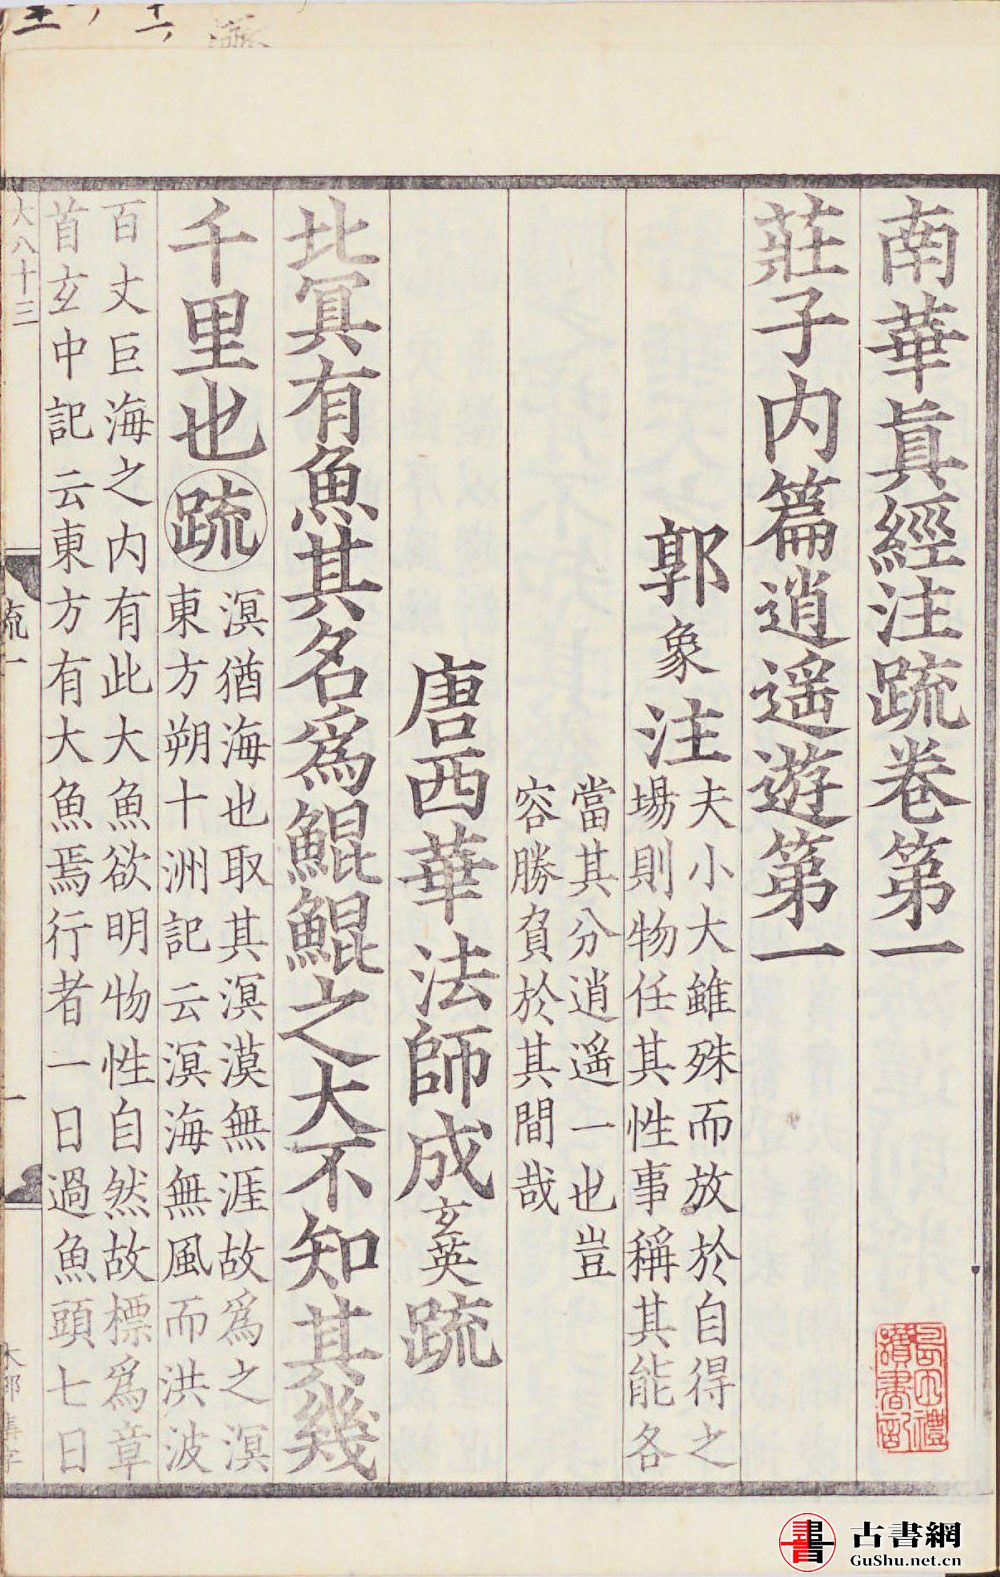 南華眞經注疏卷第一
莊子内篇逍遥遊第一
郭象注
夫小大雖殊而放於自得之
場則物任其性事稱其能各
當其分逍遥一也豈
容勝負於其間哉
唐西華法師成玄英疏
北冥有魚其名爲鯤鯤之大不知其幾
千里也疏
溟猶海也取其溟漠無涯故爲之溟
東方朔十洲記云溟海無風而洪波
百丈巨海之内有此大魚欲明物性自然故標爲章
首玄中記云東方有大魚焉行者一日過魚頭七日
大八十三
疏一
一
古書網
GuShu.net.cn